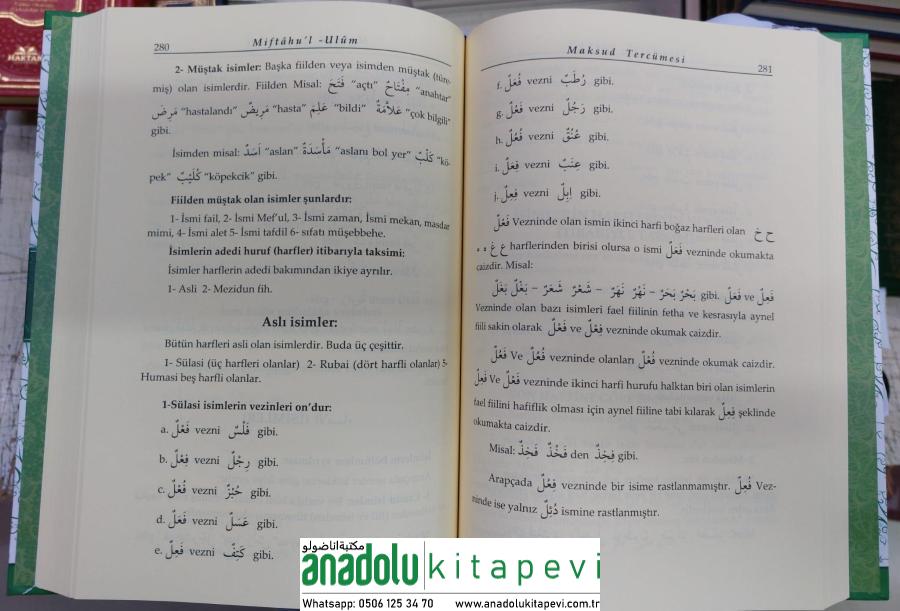 280
Miftâhu'l -Ulûm
2- Müştak isimler: Başka fiilden veya isimden müştak (türe-
miş) olan isimlerdir. Fiilden Misal: فَتَحَ "açtı" مِفْتَاحٌ "anahtar"
مَرِضَ "hastalandı" مَرِيضٌ "hasta" عَلِمَ "bildi" عَلاَّمَةٌ "çok bilgili"
gibi.
İsimden misal: اَسَدٌ "aslan" مَأْسَدَةٌ "aslanı bol yer" كَلْبٌ "kö-
pek" كُلَيْبٌ "köpekcik" gibi.
Fiilden müştak olan isimler şunlardır:
1- İsmi fail, 2- İsmi Mef'ul, 3- İsmi zaman, İsmi mekan, masdar
mimi, 4- İsmi alet 5- İsmi tafdil 6- sıfatı müşebbehe.
İsimlerin adedi huruf (harfler) itibarıyla taksimi:
İsimler harflerin adedi bakımından ikiye ayrılır.
1- Asli 2- Mezidun fih.
Aslı isimler:
Bütün harfleri asli olan isimlerdir. Buda üç çeşittir.
1- Sülasi (üç harfleri olanlar) 2- Rubai (dört harfli olanlar) 3-
Humasi beş harfli olanlar.
1-Sülasi isimlerin vezinleri on'dur:
a. فَعْلٌ vezni فَلْسٌ gibi.
b. فِعْلٌ vezni رِجْلٌ gibi.
c. فُعْلٌ vezni خُبْزٌ gibi.
d. فَعَلٌ vezni عَسَلٌ gibi.
e. فَعِلٌ vezni كَتِفٌ gibi.
Maksud Tercümesi
281
f. فُعَلٌ vezni رُطَبٌ gibi.
g. فَعُلٌ vezni رَجُلٌ gibi.
h. فُعُلٌ vezni عُنُقٌ gibi.
i. فِعَلٌ vezni عِنَبٌ gibi.
j. فِعِلٌ vezni اِبِلٌ gibi.
فَعْلٌ Vezninde olan ismin ikinci harfi boğaz harfleri olan ح خ
ع غ ء ه harflerinden birisi olursa o ismi فَعَلٌ vezninde okumakta
caizdir. Misal:
بَحْرٌ بَحَرٌ – نَهْرٌ نَهَرٌ – شَعْرٌ شَعَرٌ – بَغْلٌ بَغَلٌ gibi. فَعَلٌ ve فَعِلٌ
Vezninde olan bazı isimleri fael fiilinin fetha ve kesrasıyla aynel
fiili sakin olarak فَعْلٌ ve فِعْلٌ vezninde okumak caizdir.
فَعُلٌ Ve فُعُلٌ vezninde olanları فُعْلٌ vezninde okumak caizdir.
فَعِلٌ Ve فَعْلٌ vezninde ikinci harfi hurufu halktan biri olan isimlerin
fael fiilini hafiflik olması için aynel fiiline tabi kılarak فِعِلٌ şeklinde
okumakta caizdir.
Misal: فَخِذٌ فَخْذٌ den فِخِذٌ gibi.
Arapçada فِعُلٌ vezninde bir isime rastlanmamıştır. فُعِلٌ Vez-
ninde ise yalnız دُئِلٌ ismine rastlanmıştır.
مكتبة اناضولو
anadolu kitapevi
Whatsapp: 0506 125 34 70 www.anadolukitapevi.com.tr